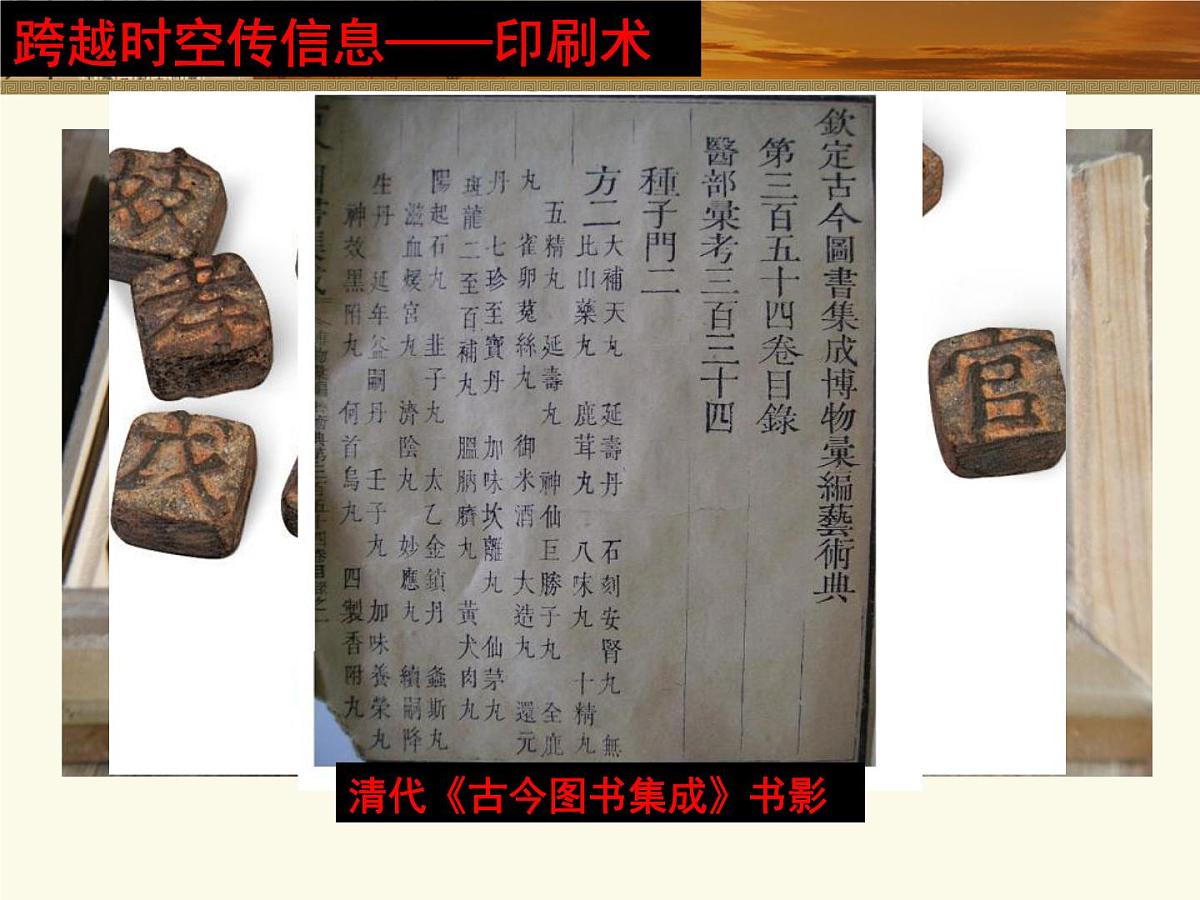 跨越时空传信息——印刷术
欽定古今圖書集成博物彙編藝術典
第三百五十四卷目錄
醫部彙考三百三十四
種子門二
方二
大補天丸 延壽丹 石刻安腎丸 無
比山藥丸 鹿茸丸 八味丸 十精丸
五精丸 延壽丸 神仙巨勝子丸 全鹿
丸 雀卵菟絲丸 御米酒 大造丸 還元
丹 七珍至寶丹 加味坎離丸 仙茅丸
斑龍二至百補丸 膃肭臍丸 黃犬肉丸
陽起石丸 韭子丸 太乙金鎖丹 螽斯丸
滋血煖宮丸 濟陰丸 妙應丸 續嗣降
生丹 延年益嗣丹 壬子丸 加味養榮丸
神效黑附丸 何首烏丸 四製香附丸
孝
戊
官
清代《古今图书集成》书影